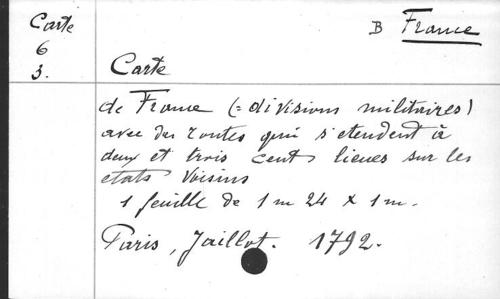 Carte
6
3.
B France
Carte
de France (= divisions militaires)
avec des routes qui s'etendent à
deux et trois cent lieues sur les
etats voisins
1 feuille de 1 m 24 x 1 m.
Paris, Jaillot. 1792.